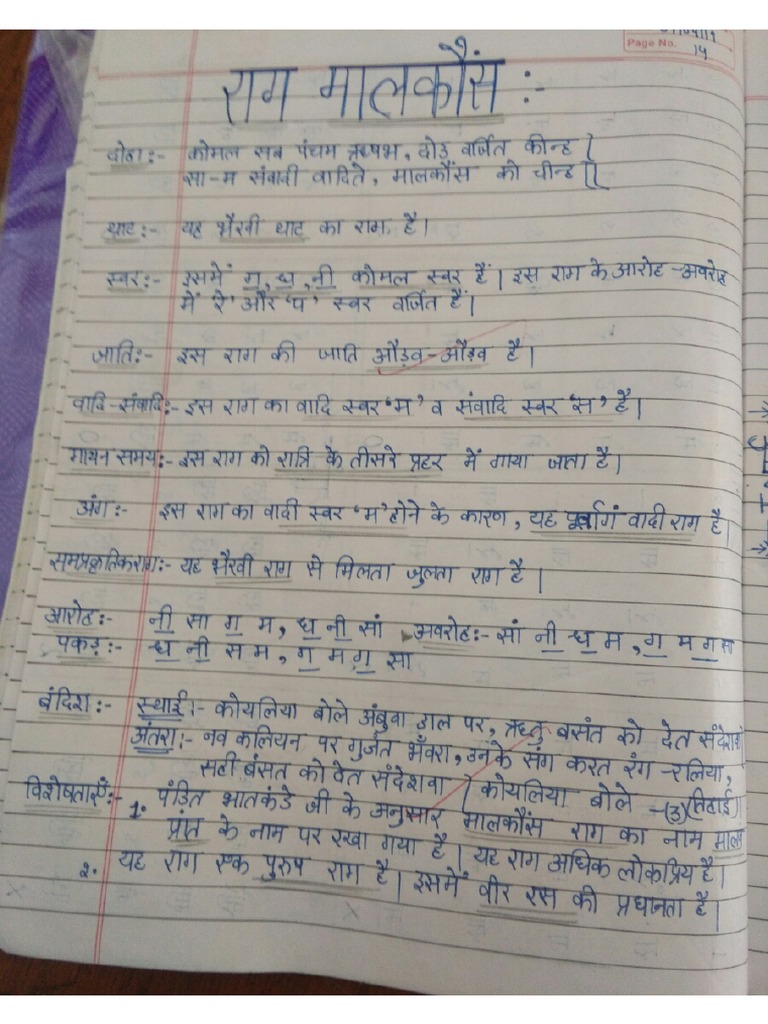 Page No.
14
राग मालकौंस :-
दोहा:- कोमल सब पंचम ऋषभ, दोउ वर्जित कीन्ह |
सा-म संवादी वादिते, मालकौंस को चीन्ह ||
थाट:- यह भैरवी थाट का राग है।
स्वर:- इसमें ग॒, ध॒, नी॒ कोमल स्वर हैं। इस राग के आरोह-अवरोह
में 'रे' और 'प' स्वर वर्जित हैं।
जाति:- इस राग की जाति औड़व-औड़व है।
वादि-संवादि:- इस राग का वादि स्वर 'म' व संवादि स्वर 'स' है।
गायन समय:- इस राग को रात्रि के तीसरे प्रहर में गाया जाता है।
अंग:- इस राग का वादी स्वर 'म' होने के कारण, यह पूर्वांग वादी राग है।
समप्रकृतिक राग:- यह भैरवी राग से मिलता जुलता राग है।
आरोह:- नी॒ सा ग॒ म, ध॒ नी॒ सां अवरोह:- सां नी॒ ध॒ म, ग॒ म ग॒ सा
पकड़:- ध॒ नी॒ स म, ग॒ म ग॒ सा
बंदिश:- स्थाई:- कोयलिया बोले अंबुवा डाल पर, ऋतु बसंत को देत संदेशवा
अंतरा:- नव कलियन पर गुंजत भँवरा, उनके संग करत रंग-रलिया,
सही बंसत को देत संदेशवा | कोयलिया बोले -(3)(तिहाई)
विशेषताएँ:- 1. पंडित भातकंडे जी के अनुसार मालकौंस राग का नाम मालव
प्रांत के नाम पर रखा गया है। यह राग अधिक लोकप्रिय है।
2. यह राग एक पुरुष राग है। इसमें वीर रस की प्रधानता है।